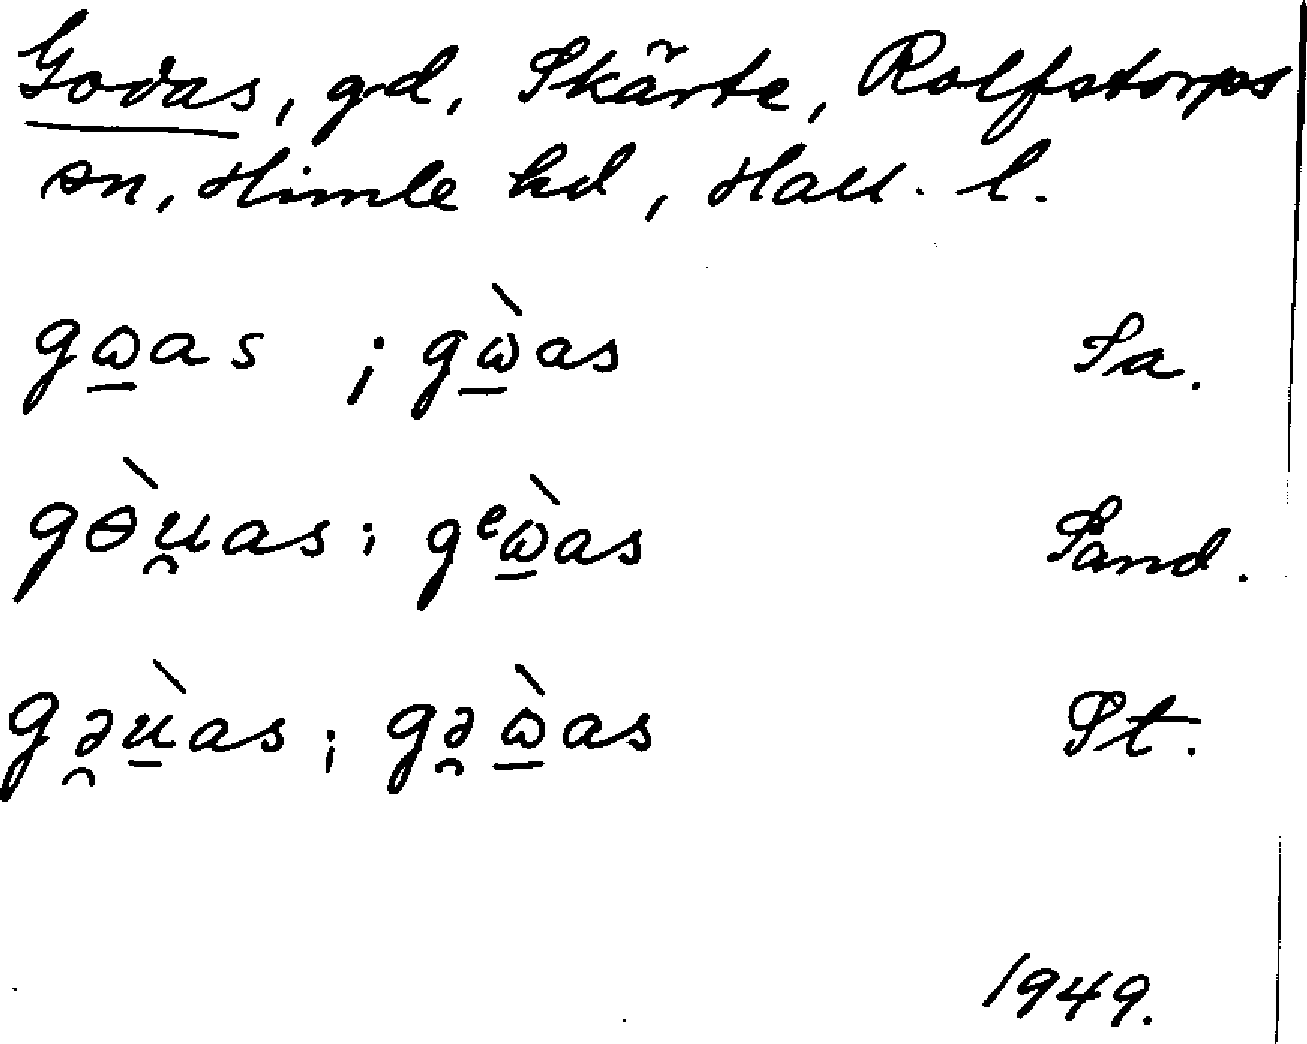 Godas, gd, Skärte, Rolfstorps
sn, Himle hd, Hall. l.
gω̲as ; gὼ̲as Sa.
gɵ̀u̯as ; gᵉὼ̲as Sand.
gə̯ù̲as ; gə̯ὼ̲as St.
1949.